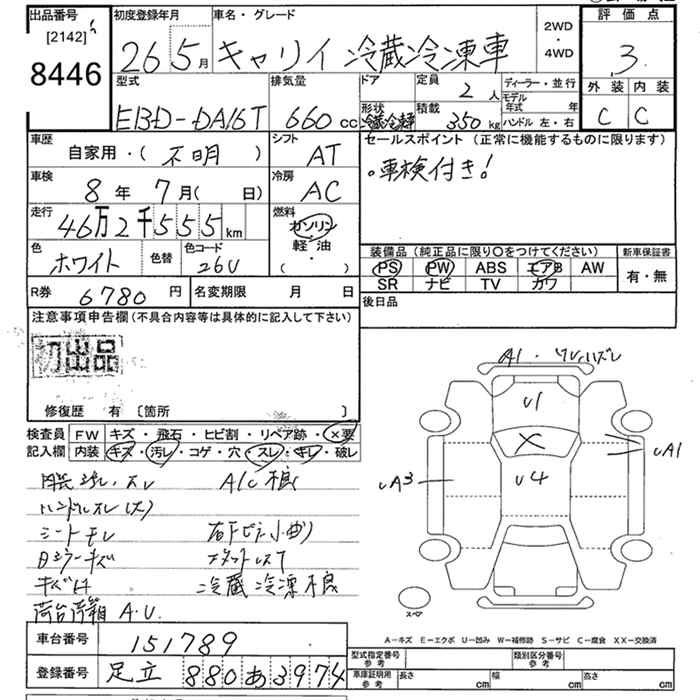 出品番号 初度登録年月 車名・グレード 2WD・4WD 評価点
[2142]
8446 26 5月 キャリイ 冷蔵冷凍車 3
型式 排気量 ドア 定員 2人 ディーラー・並行 外装 内装
EBD-DA16T 660cc 形状 冷蔵冷凍車 積載 350kg モデル年式 年 ハンドル 左・右 C C
車歴 自家用・(不明) シフト AT セールスポイント (正常に機能するものに限ります)
車検 8年 7月( 日) 冷房 AC ・車検付き!
走行 46万2千555km 燃料 ガソリン・軽油・( )
色 ホワイト 色替 色コード 26U 装備品(純正品に限り○をつけてください) 新車保証書
PS PW ABS エアB AW 有・無
SR ナビ TV カワ
R券 6780円 名変期限 月 日 後日品
注意事項申告欄(不具合内容等は具体的に記入して下さい)
初出品
修復歴 有 [箇所 ]
検査員 FW キズ・飛石・ヒビ割・リペア跡・×要
記入欄 内装 キズ・汚レ・コゲ・穴・スレ・キレ・破レ
A1・
U1
A1
U4
UA3
A/C不良
ハンドルスレ(大)
冷蔵冷凍不良
荷台荷箱 A.U.
スペア
A-キズ E-エクボ U-凹み W-補修跡 S-サビ C-腐食 XX-交換済
車台番号 151789
型式指定番号 参考 類別区分番号 参考
登録番号 足立 880 あ 3974
車庫証明用 参考 長さ cm 幅 cm 高さ cm